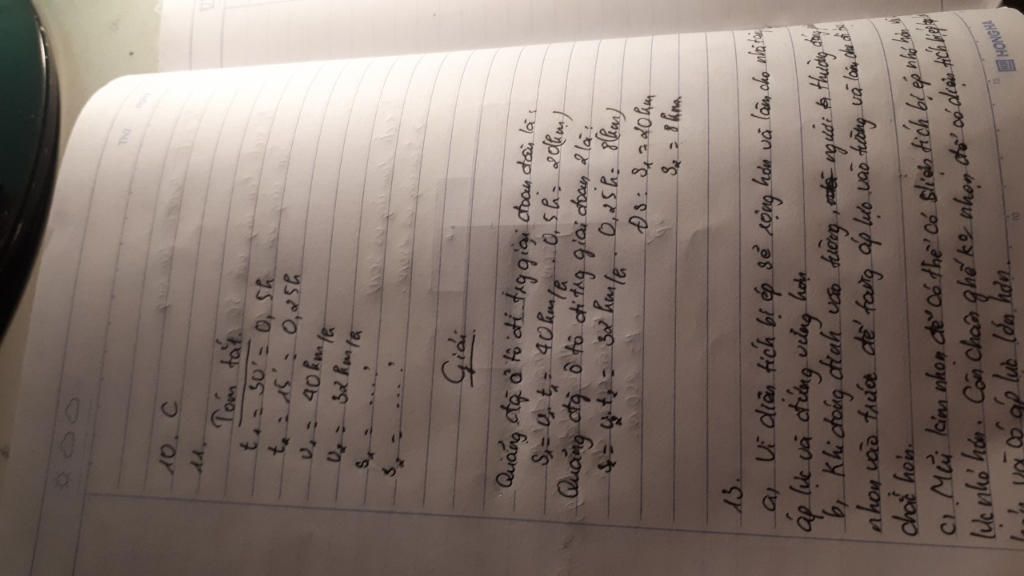 10. C
11.
Tóm tắt
t₁ = 30' = 0,5h
t₂ = 15' = 0,25h
v₁ = 40km/h
v₂ = 32km/h
s₁ = ....,
s₂ = ....,
Giải
Quãng đg ô tô đi trg giai đoạn đầu là:
S₁ = v₁ t₁ = 40km/h . 0,5h = 20(km)
Quãng đg ô tô đi trg giai đoạn 2 là:
S₂ = v₂ t₂ = 32km/h . 0,25h = 8(km)
ĐS: S₁ = 20km
S₂ = 8km
13.
a, Vì diện tích bị ép sẽ rộng hơn và làm cho nhà
áp lực và đứng vững hơn
b, Khi đóng đinh vào tường, người thường đóng
nhọn vào trước để tăng áp lực vào tường và làm cho
chắt hơn.
c, Mũi kim nhọn để có thể có diện tích bị ép nhỏ
lực nhỏ hơn. Còn chân ghế ko nhọn để có diện tích
và có áp lực lớn hơn.
HONGHA